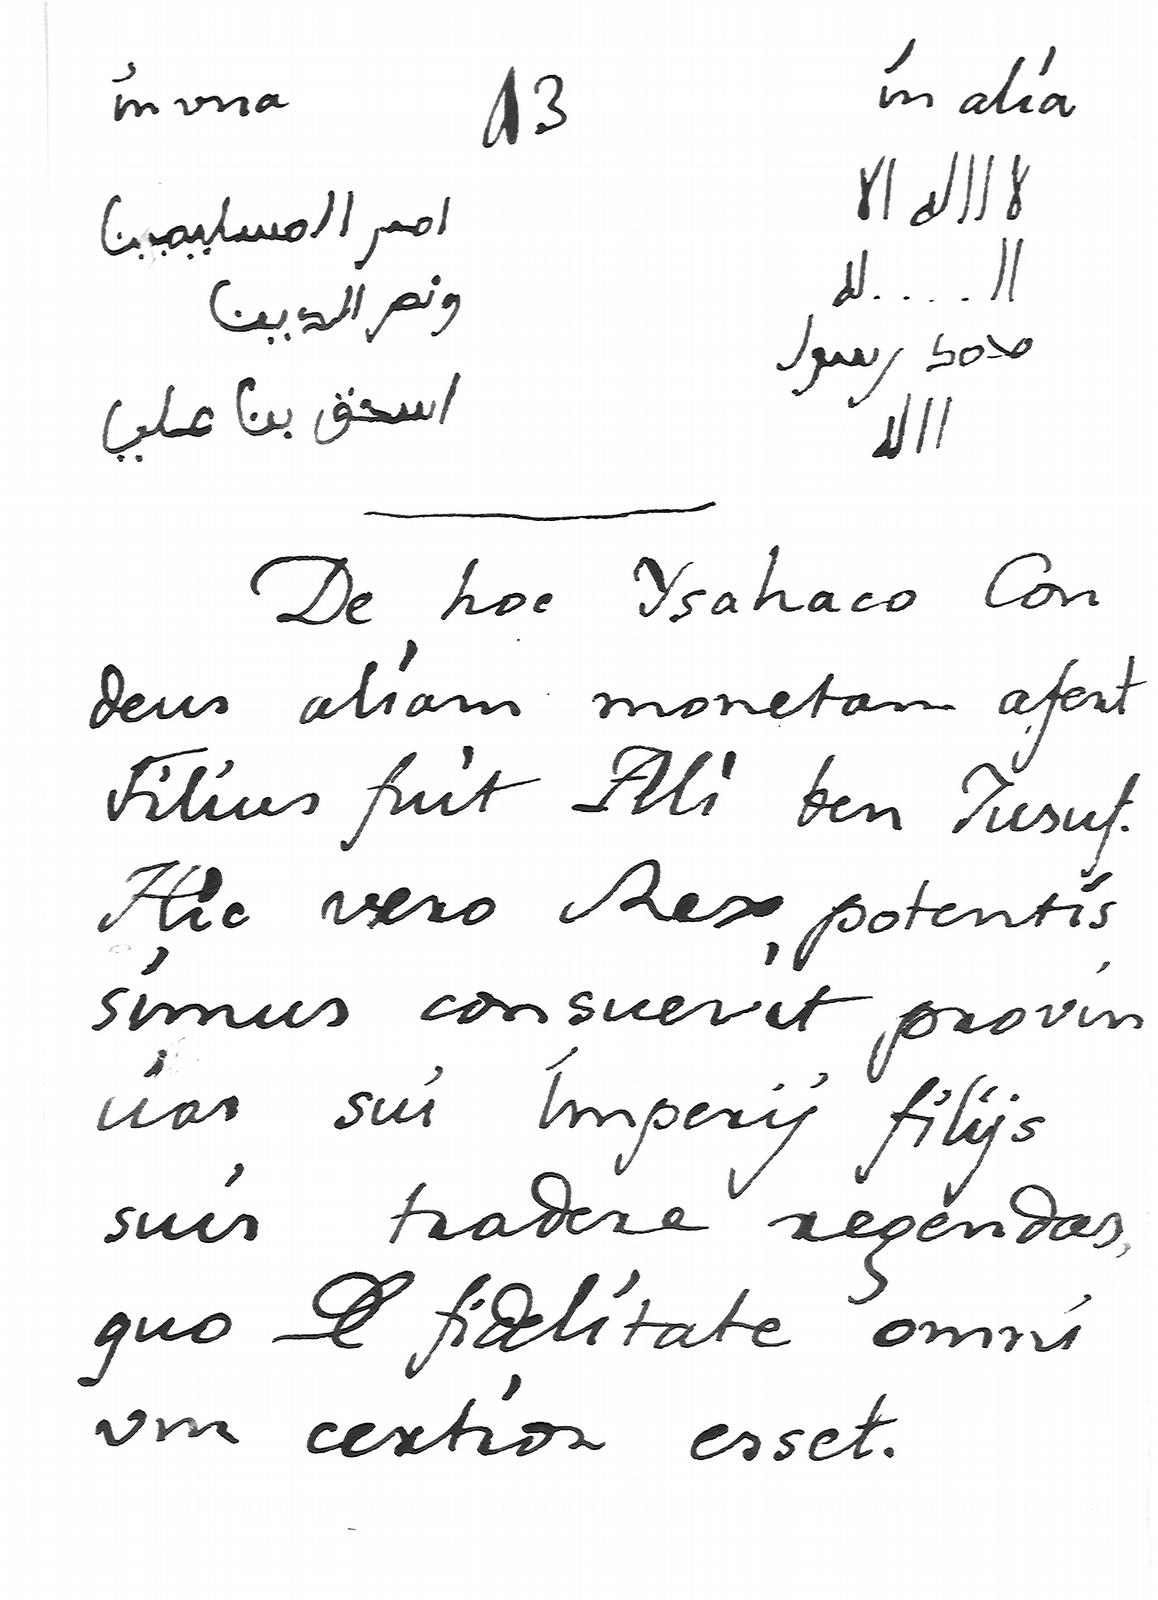 in vna 13 in alia
امير المسليمين
ونصر الديين
اسحق بن علي
لا االه الا
الـ....له
محمد رسول
االله
De hoc Ysahaco Con
deus aliam monetam afert
Filius fuit Ali ben Jusuf.
Hic vero Rex potentis
simus consuevit provin
cias sui Imperij filijs
suis tradere regendas,
quo de fidelitate omni
vm certior esset.